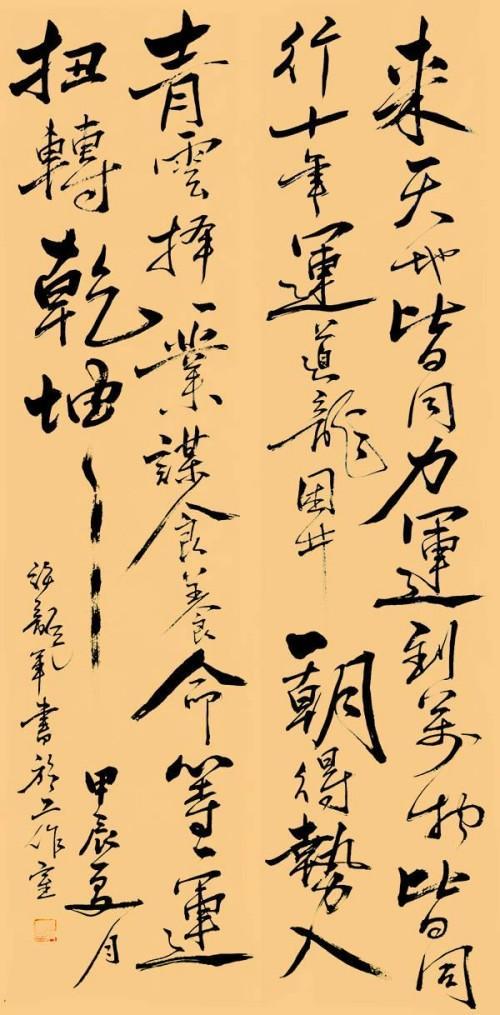 来天地皆同力運到萬物皆同
行十年運道龍困井一朝得勢入
青雲择一業謀食養命等一運
扭轉乾坤
甲辰夏月
書於工作室